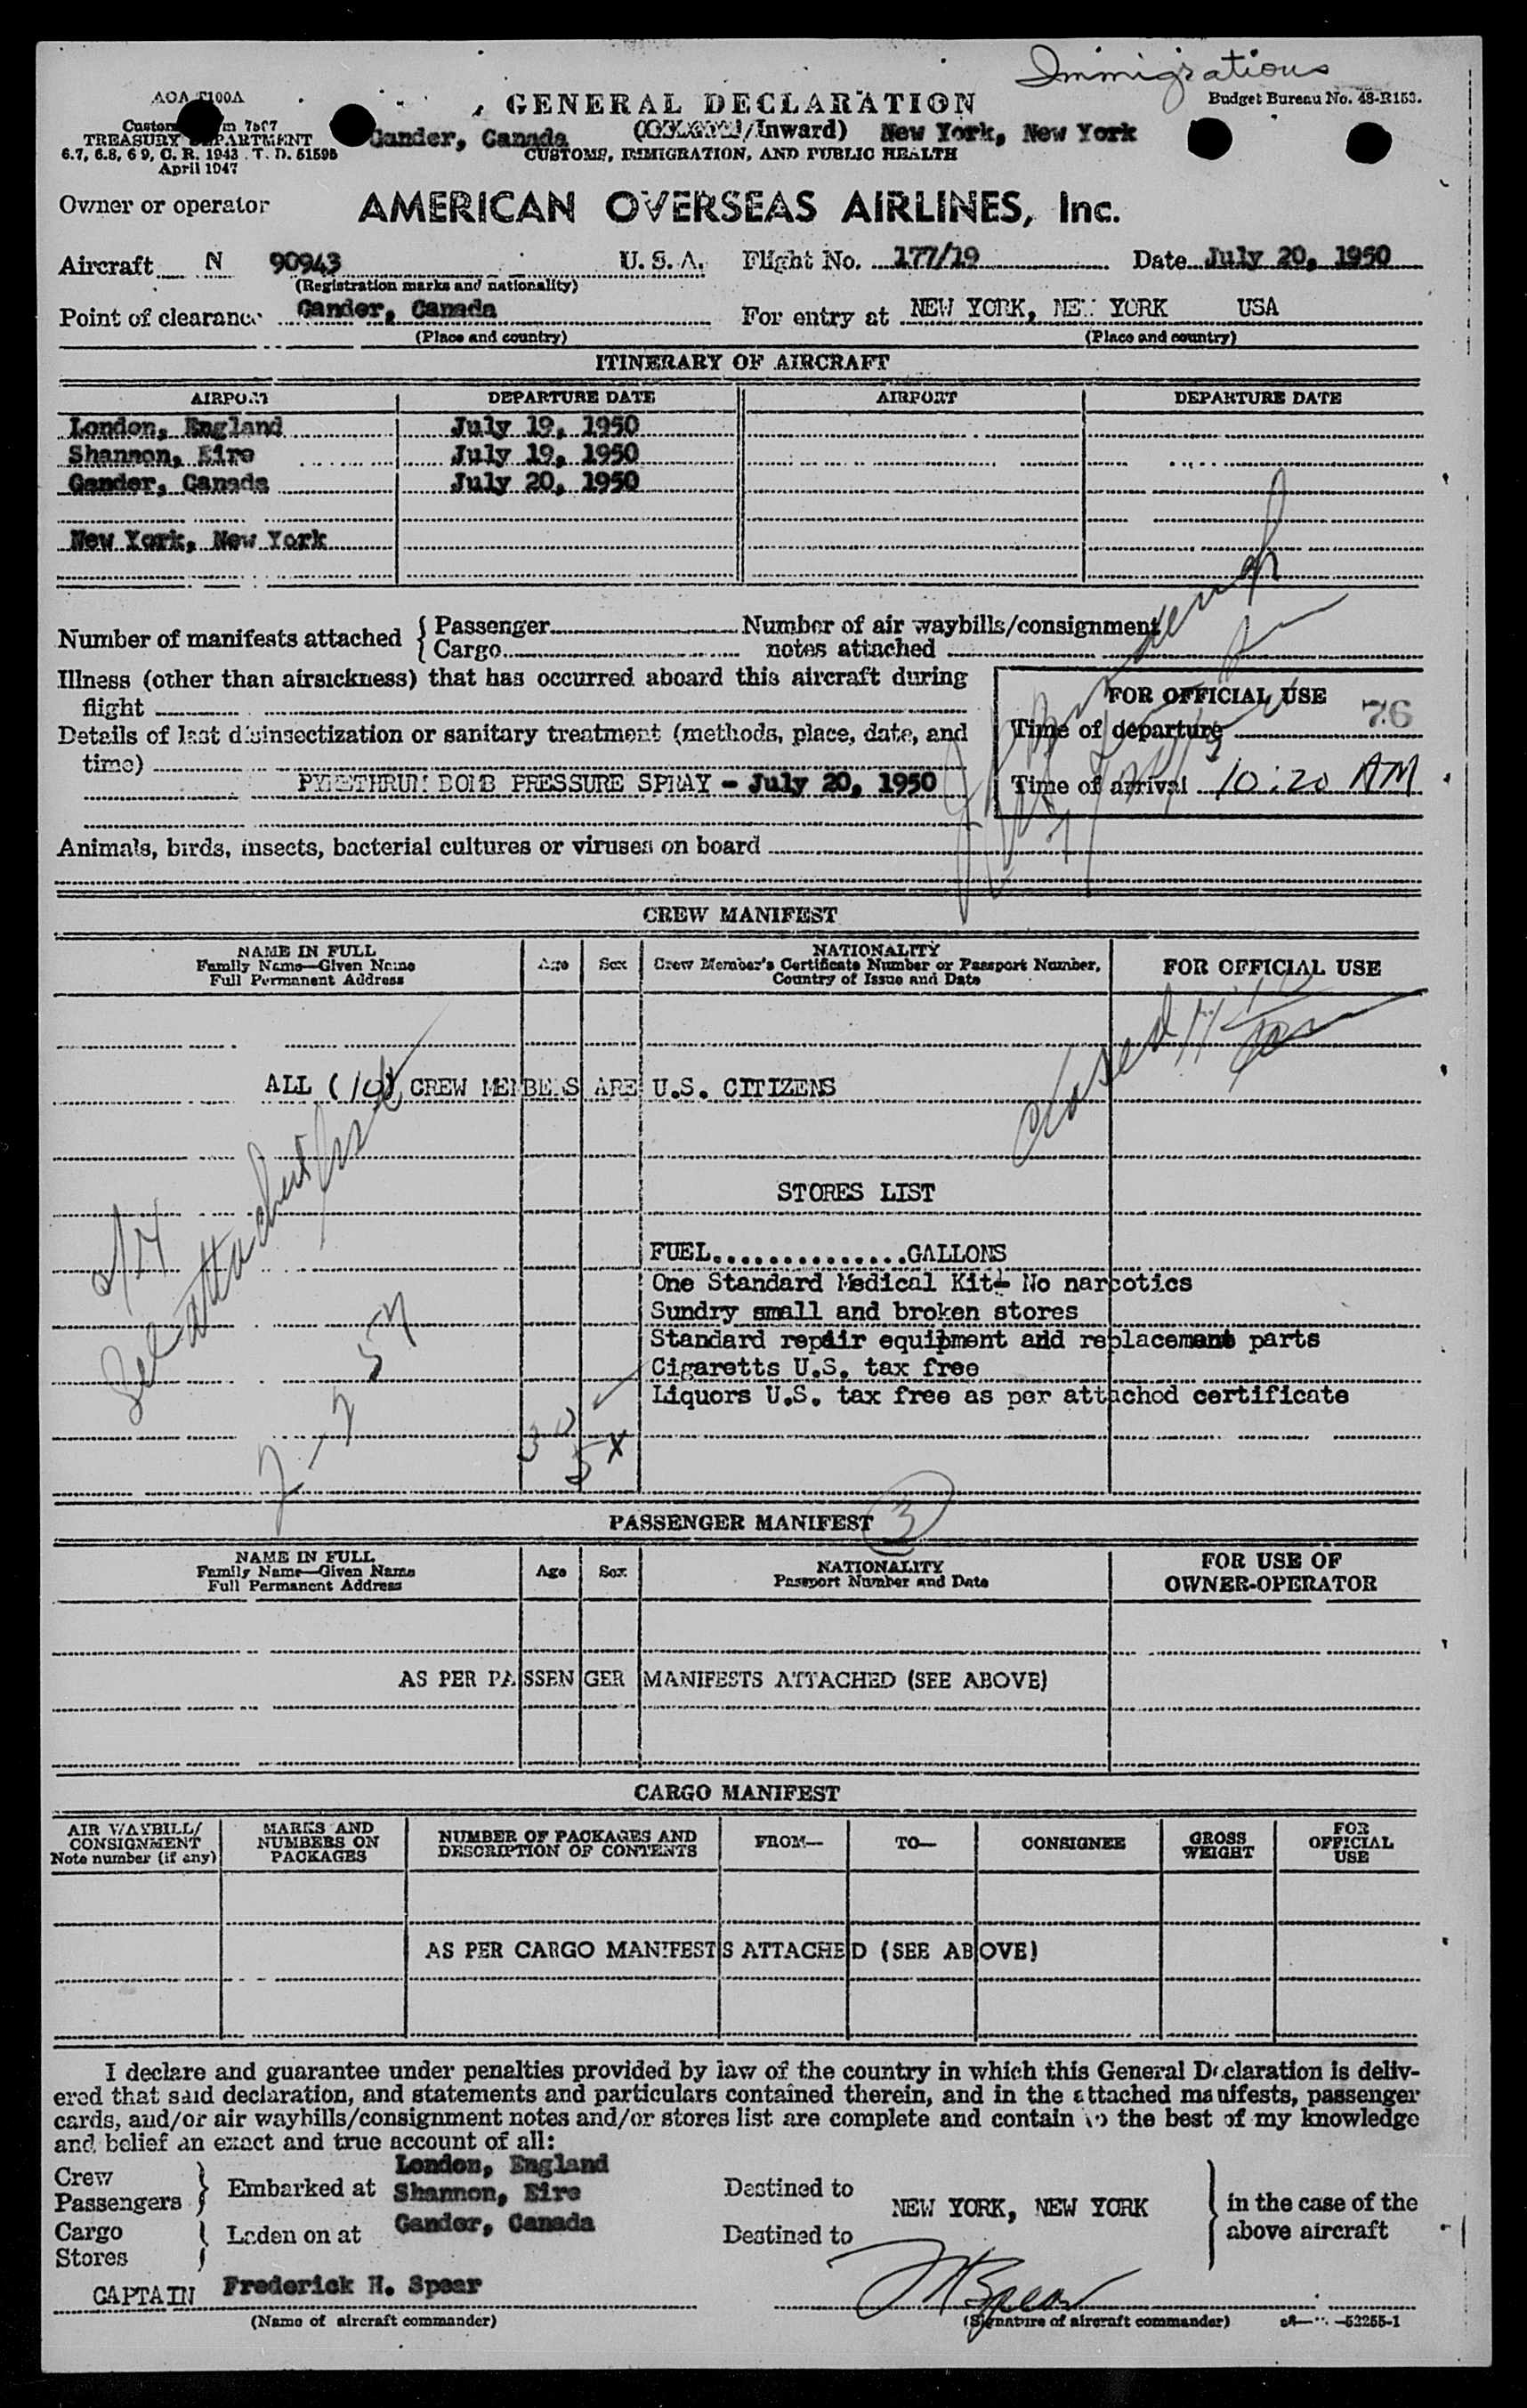 Immigrations
AOA T100A
GENERAL DECLARATION
Budget Bureau No. 48-R153.
Customs Form 7507
Gander, Canada (Outward/Inward) New York, New York
TREASURY DEPARTMENT
CUSTOMS, IMMIGRATION, AND PUBLIC HEALTH
6.7, 6.8, 6 9, C. R. 1943 . T. D. 51595
April 1947
Owner or operator AMERICAN OVERSEAS AIRLINES, Inc.
Aircraft N 90943 U. S. A. Flight No. 177/19 Date July 20, 1950
(Registration marks and nationality)
Point of clearance Gander, Canada For entry at NEW YORK, NEW YORK USA
(Place and country) (Place and country)
ITINERARY OF AIRCRAFT
AIRPORT DEPARTURE DATE AIRPORT DEPARTURE DATE
London, England July 19, 1950
Shannon, Eire July 19, 1950
Gander, Canada July 20, 1950
New York, New York
Number of manifests attached { Passenger Number of air waybills/consignment
Cargo notes attached
Illness (other than airsickness) that has occurred aboard this aircraft during
flight
FOR OFFICIAL USE
76
Details of last disinsectization or sanitary treatment (methods, place, date, and
time)
Time of departure
PYRETHRUM BOMB PRESSURE SPRAY - July 20, 1950
Time of arrival 10:20 AM
Animals, birds, insects, bacterial cultures or viruses on board
CREW MANIFEST
NAME IN FULL
Family Name—Given Name
Full Permanent Address
Age Sex
NATIONALITY
Crew Member's Certificate Number or Passport Number,
Country of Issue and Date
FOR OFFICIAL USE
ALL (10) CREW MEMBERS ARE U.S. CITIZENS
closed
See attached
STORES LIST
FUEL...............GALLONS
One Standard Medical Kit- No narcotics
Sundry small and broken stores
Standard repair equipment and replacement parts
Cigaretts U.S. tax free
Liquors U.S. tax free as per attached certificate
30
5 x
PASSENGER MANIFEST 3
NAME IN FULL
Family Name—Given Name
Full Permanent Address
Age Sex
NATIONALITY
Passport Number and Date
FOR USE OF
OWNER-OPERATOR
AS PER PASSENGER MANIFESTS ATTACHED (SEE ABOVE)
CARGO MANIFEST
AIR WAYBILL/
CONSIGNMENT
Note number (if any)
MARKS AND
NUMBERS ON
PACKAGES
NUMBER OF PACKAGES AND
DESCRIPTION OF CONTENTS
FROM—
TO—
CONSIGNEE
GROSS
WEIGHT
FOR
OFFICIAL
USE
AS PER CARGO MANIFESTS ATTACHED (SEE ABOVE)
I declare and guarantee under penalties provided by law of the country in which this General Declaration is deliv-
ered that said declaration, and statements and particulars contained therein, and in the attached manifests, passenger
cards, and/or air waybills/consignment notes and/or stores list are complete and contain to the best of my knowledge
and belief an exact and true account of all:
London, England
Crew
Passengers } Embarked at Shannon, Eire Destined to
NEW YORK, NEW YORK } in the case of the
above aircraft
Cargo
Stores } Laden on at Gander, Canada Destined to
CAPTAIN Frederick H. Spear FHSpear
(Name of aircraft commander) (Signature of aircraft commander) -52255-1